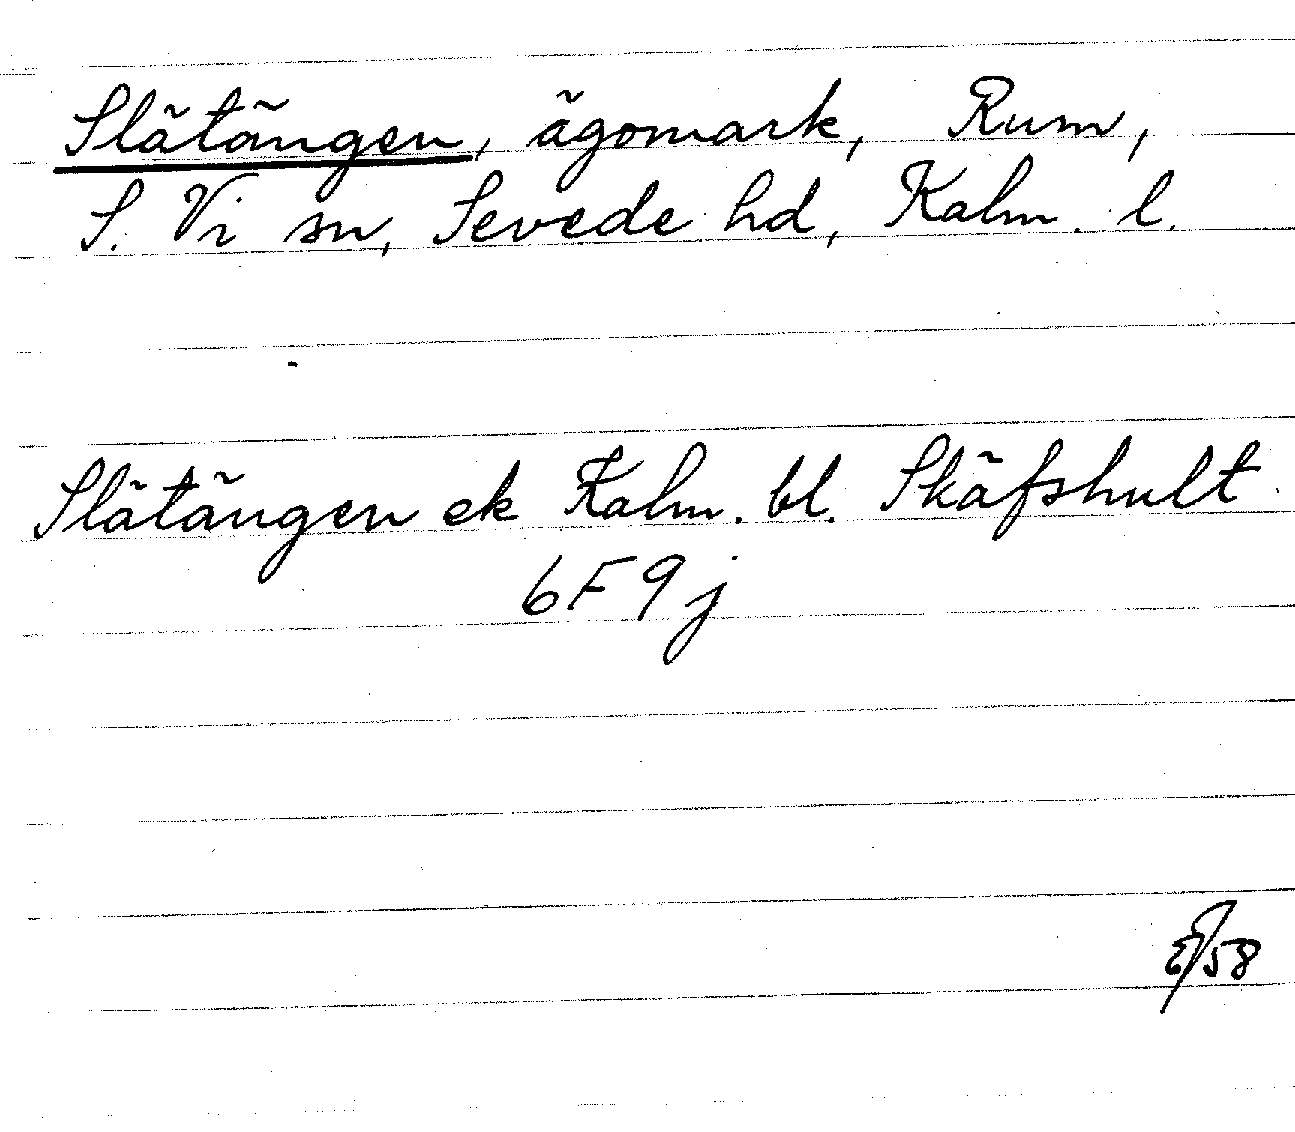 Slätängen, ägomark, Rum,
S. Vi sn, Sevede hd, Kalm. l.
Slätängen ek Kalm. bl. Skäfshult
6F9j
58